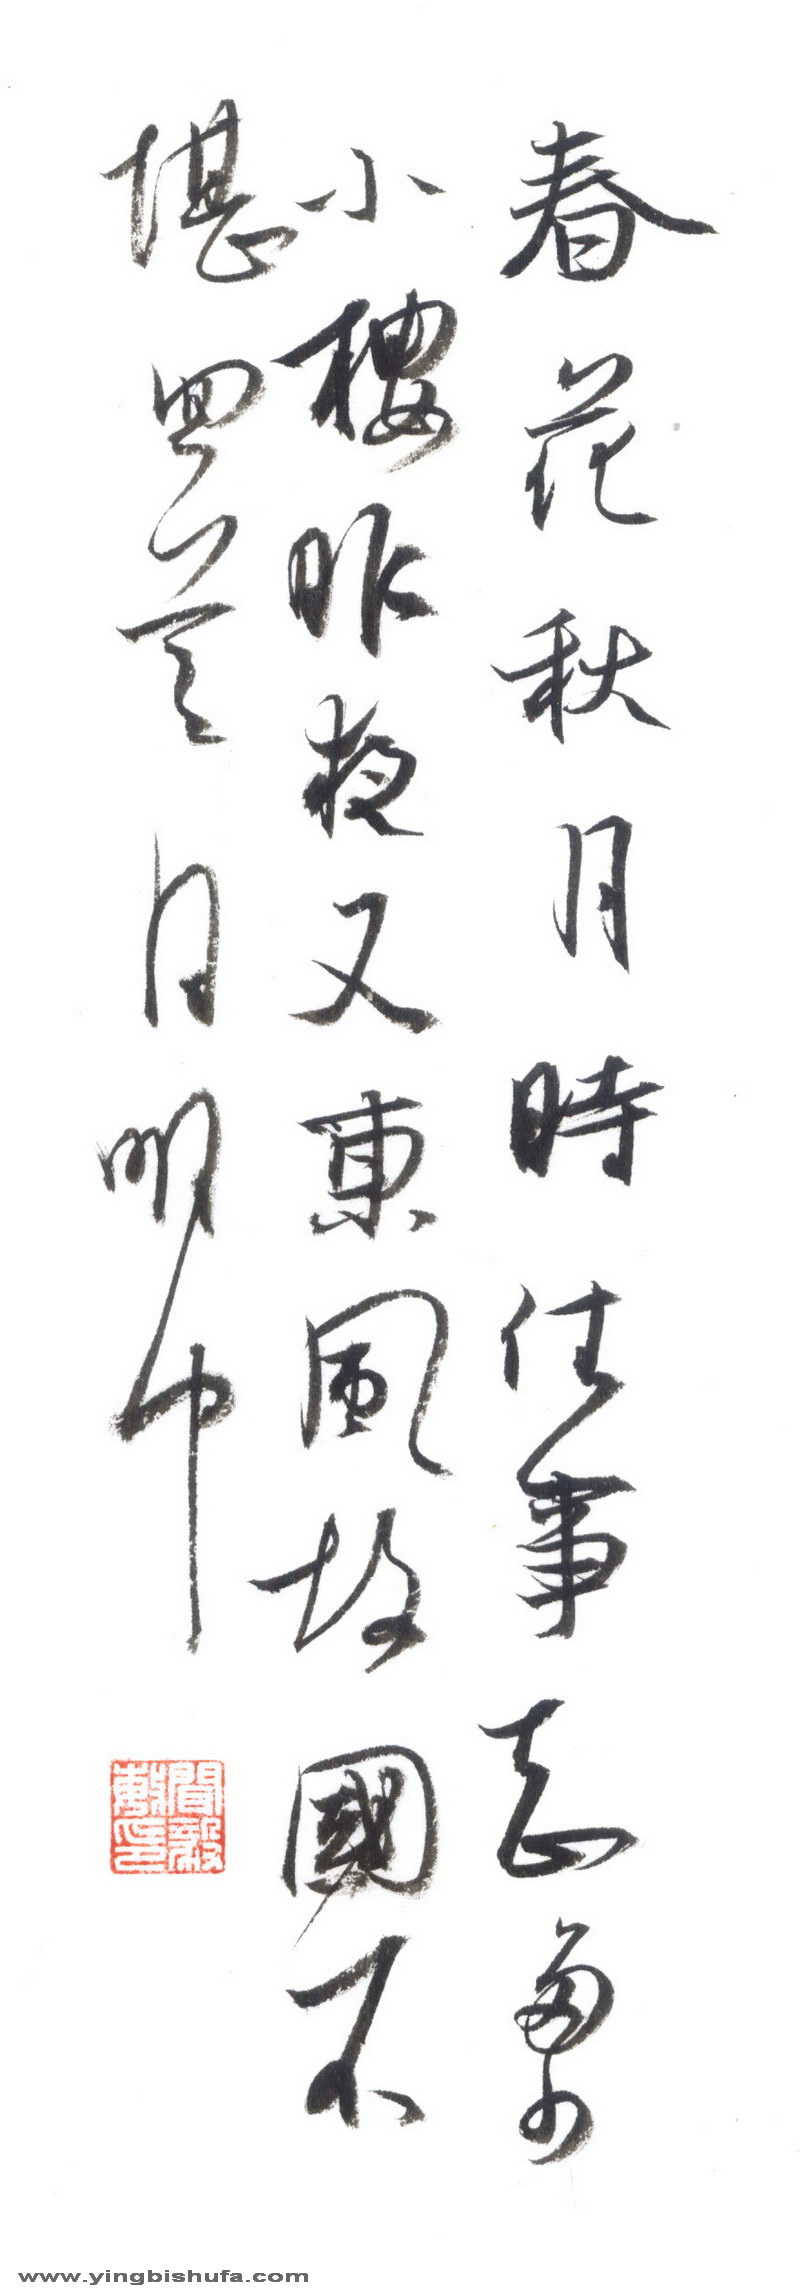 春花秋月時往事知多少
小樓昨夜又東風故國不
堪回首月明中
www.yingbishufa.com